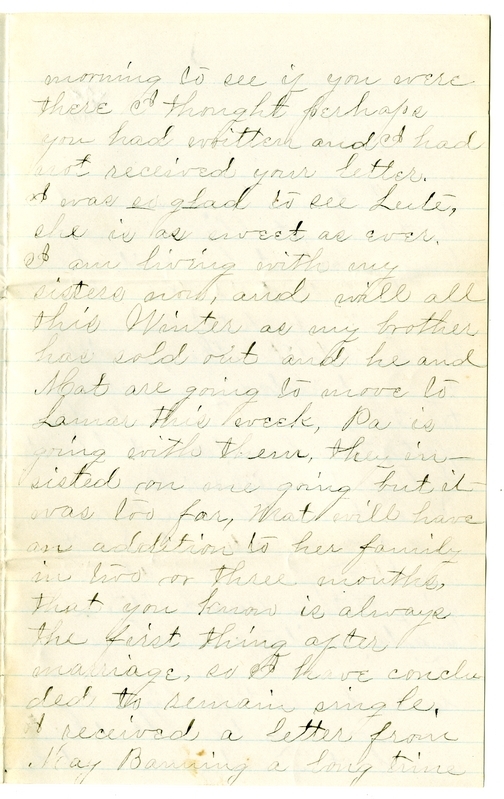 morning to see if you were
there I thought perhaps
you had written and I had
not received your letter.
I was so glad to see Lute,
she is as sweet as ever.
I am living with my
sisters now, and will all
this Winter as my brother
has sold out and he and
Mat are going to move to
Lamar this week, Pa is
going with them, they in-
sisted on me going but it
was too far, Mat will have
an addition to her family
in two or three months,
that you know is always
the first thing after
marriage, so I have conclu
ded to remain single.
I received a letter from
May Banning a long time